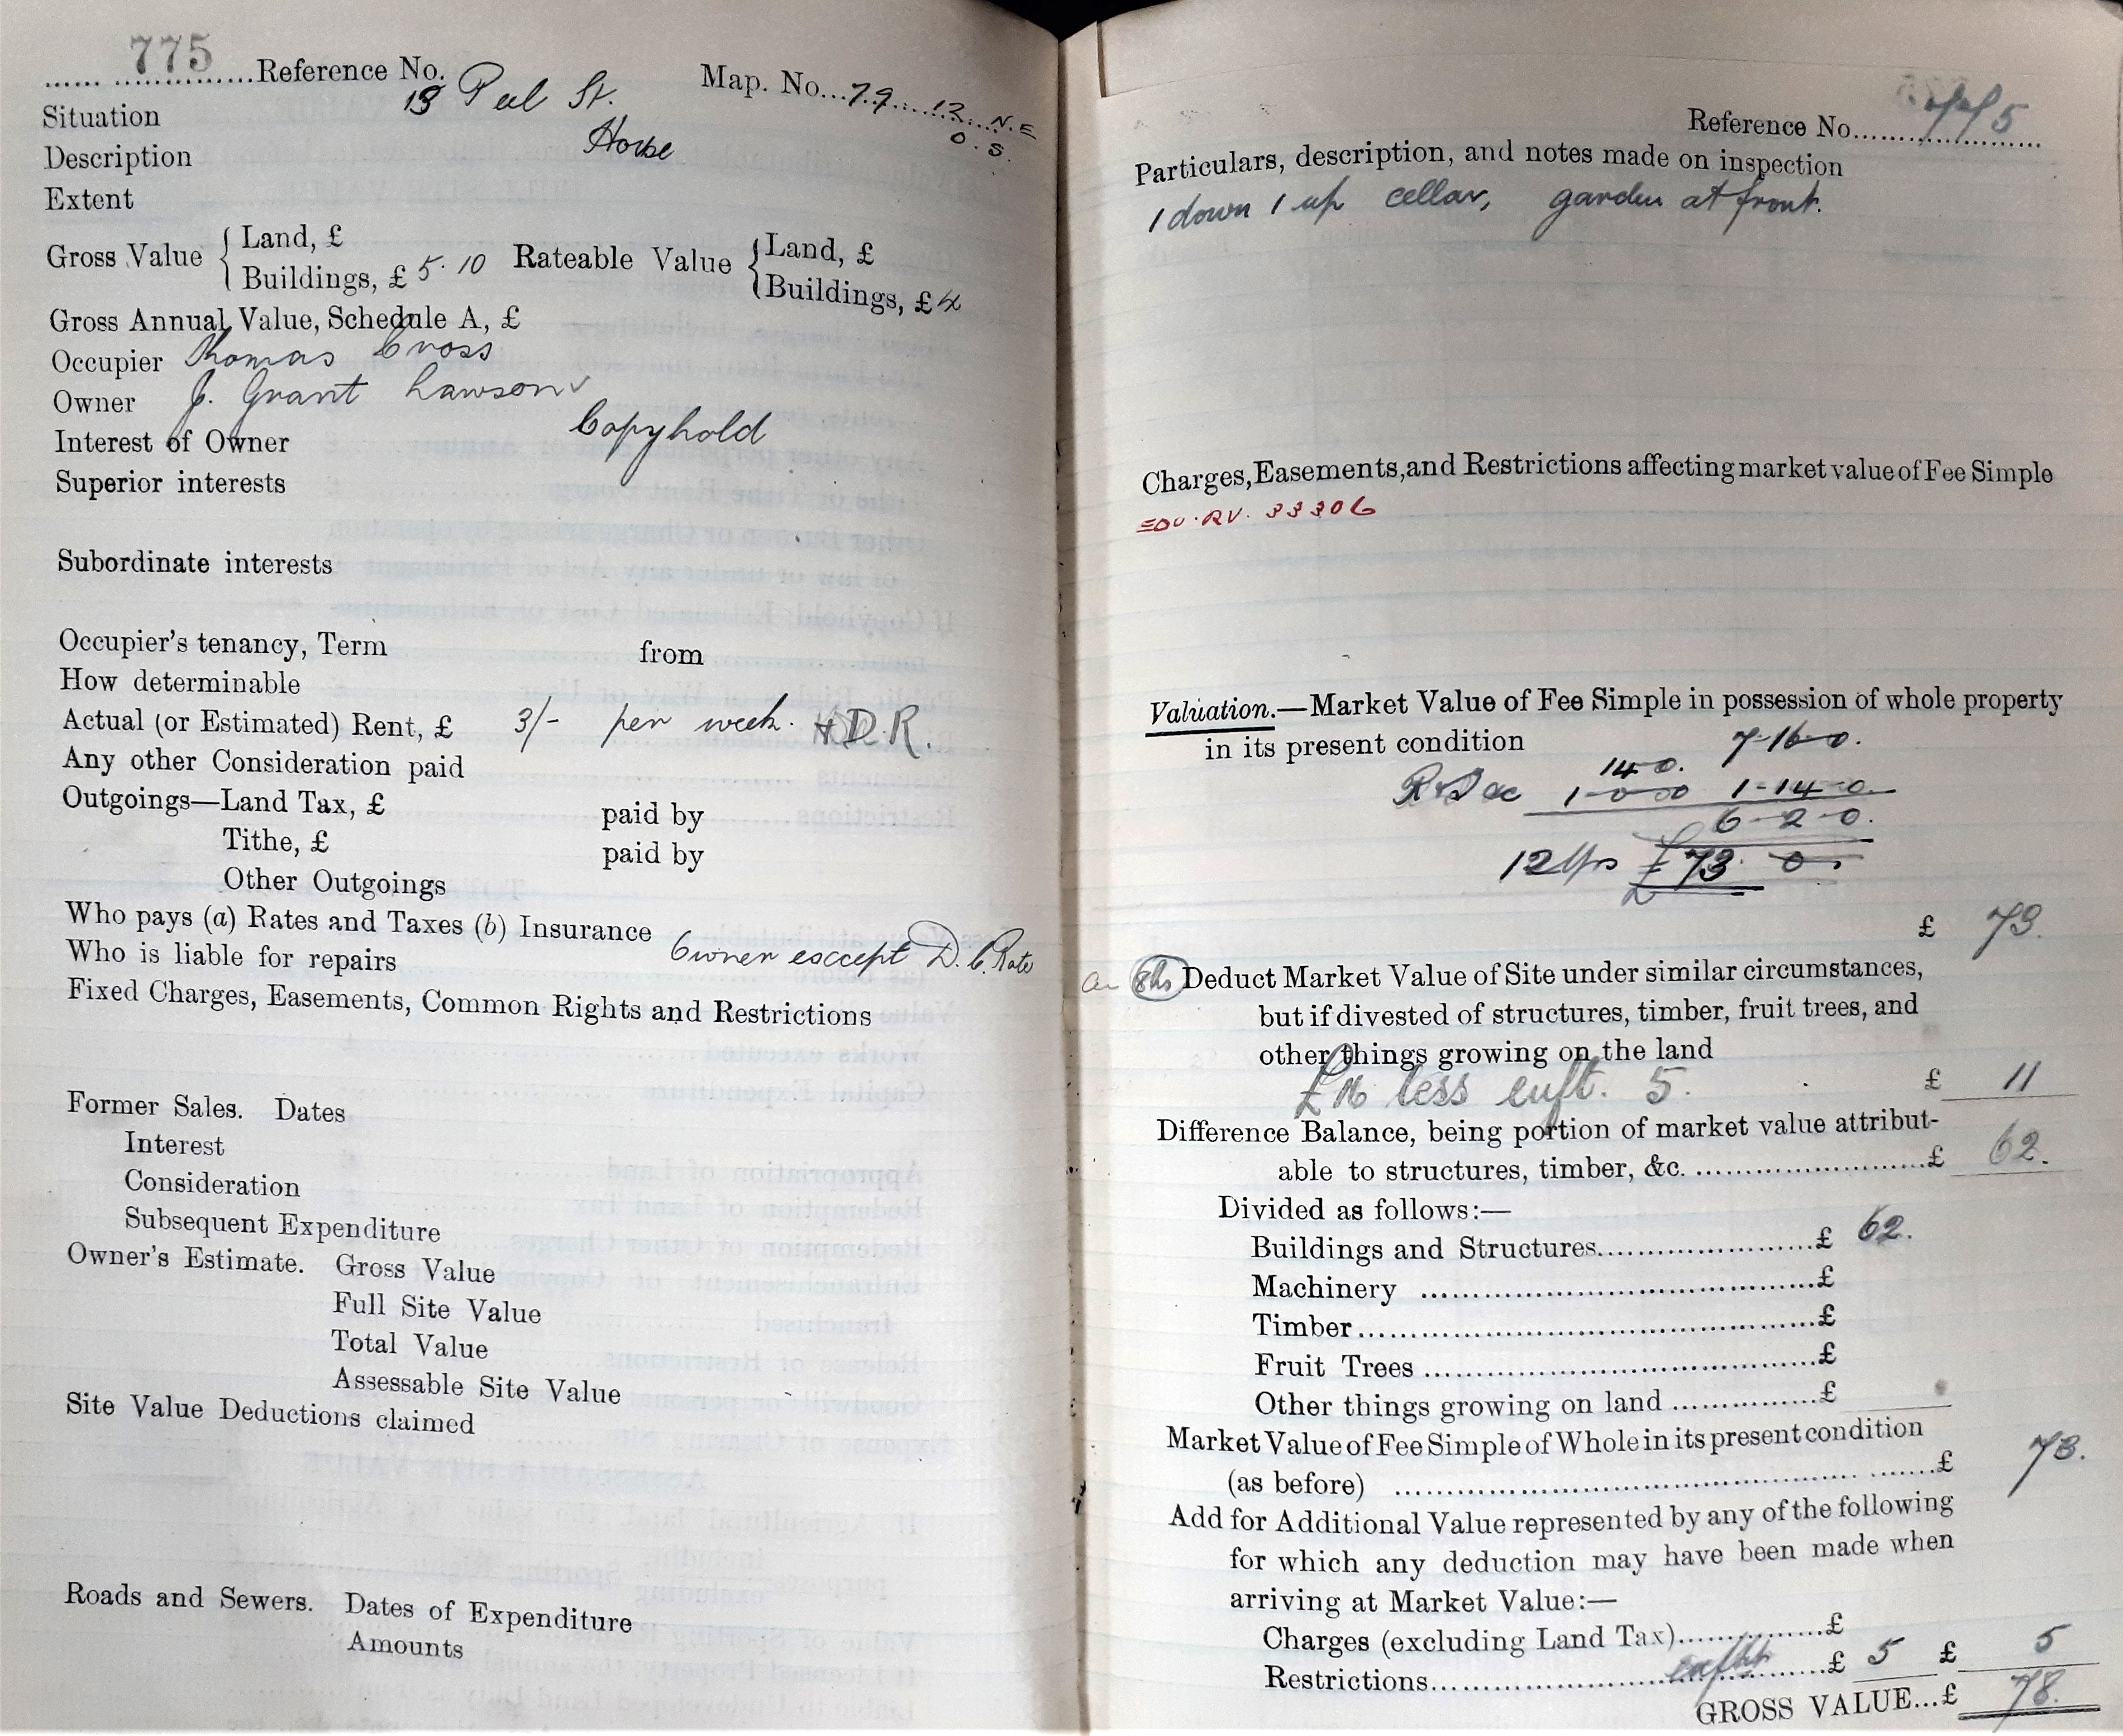 775 Reference No. Map. No. 79. 12. N.E
O.S.
Situation 13 Peel St.
Description House
Extent
Gross Value { Land, £ Rateable Value { Land, £
Buildings, £ 5.10 Buildings, £ 4
Gross Annual Value, Schedule A, £
Occupier Thomas Cross
Owner J. Grant Lawson
Interest of Owner Copyhold
Superior interests
Subordinate interests
Occupier's tenancy, Term from
How determinable
Actual (or Estimated) Rent, £ 3/- per week. D.R.
Any other Consideration paid
Outgoings—Land Tax, £ paid by
Tithe, £ paid by
Other Outgoings
Who pays (a) Rates and Taxes (b) Insurance
Who is liable for repairs Owner except D.C. Rate
Fixed Charges, Easements, Common Rights and Restrictions
Former Sales. Dates
Interest
Consideration
Subsequent Expenditure
Owner's Estimate. Gross Value
Full Site Value
Total Value
Assessable Site Value
Site Value Deductions claimed
Roads and Sewers. Dates of Expenditure
Amounts
Reference No. 775
Particulars, description, and notes made on inspection
1 down 1 up cellar, garden at front.
Charges, Easements, and Restrictions affecting market value of Fee Simple
EDV. RV. 33306
Valuation.—Market Value of Fee Simple in possession of whole property
in its present condition 7-16-0.
14-0.
1-0-0 1-14-0.
6-2-0.
12 Yrs £73. 0.
£ 73.
Deduct Market Value of Site under similar circumstances,
but if divested of structures, timber, fruit trees, and
other things growing on the land
£16 less enft. 5. £ 11
Difference Balance, being portion of market value attribut-
able to structures, timber, &c. £ 62.
Divided as follows:—
Buildings and Structures £ 62.
Machinery £
Timber £
Fruit Trees £
Other things growing on land £
Market Value of Fee Simple of Whole in its present condition
(as before) £ 73.
Add for Additional Value represented by any of the following
for which any deduction may have been made when
arriving at Market Value:—
Charges (excluding Land Tax) £
Restrictions £ 5 £ 5
GROSS VALUE...£ 78.